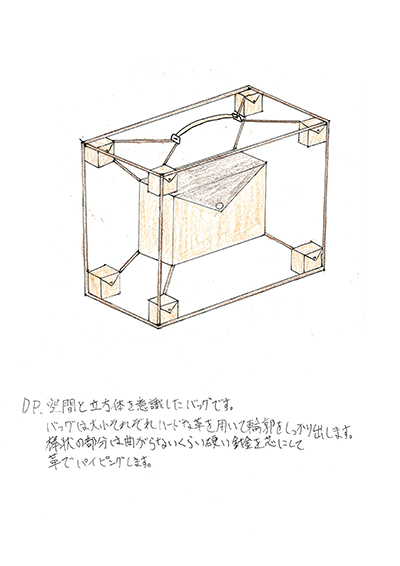 DP. 空間と立方体を意識したバッグです。
バッグは大小それぞれハードな革を用いて輪郭をしっかり出します。
棒状の部分は曲がらないくらい硬い針金を芯にして
革でパイピングします。